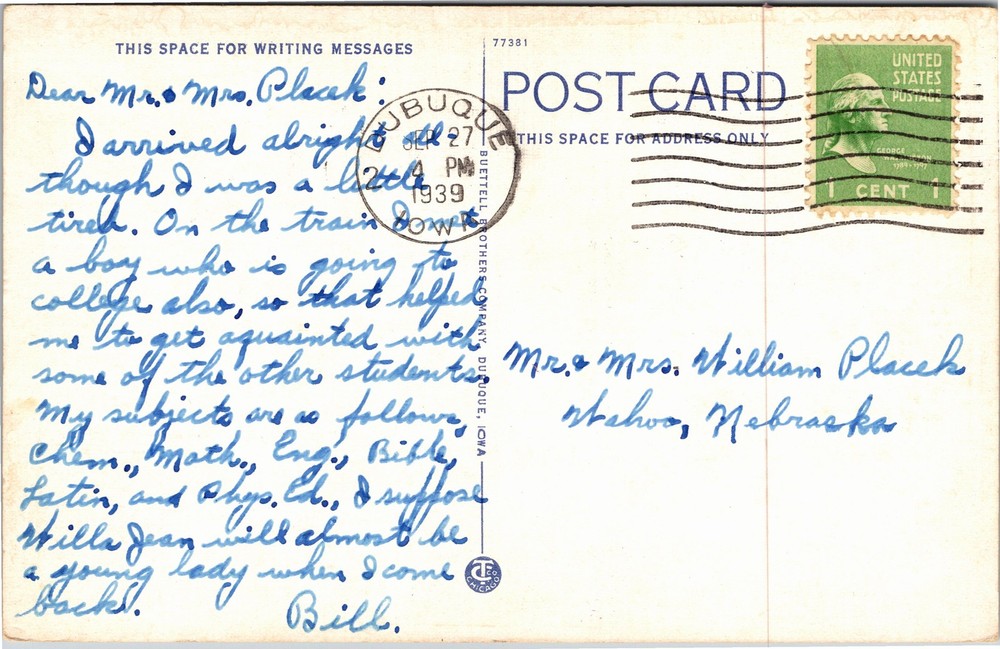 THIS SPACE FOR WRITING MESSAGES
Dear Mr. & Mrs. Placek:
I arrived alright al-
though I was a little
tired. On the train I met
a boy who is going to
college also, so that helped
me to get aquainted with
some of the other students.
My subjects are as follows,
Chem., Math., Eng., Bible,
Latin, and Phys. Ed., I suppose
Willa Jean will almost be
a young lady when I come
back.
Bill.
DUBUQUE
SEP 27
4 PM
1939
IOWA
2
BUETTELL BROTHERS COMPANY, DUBUQUE, IOWA
CT
CHICAGO
77381
POST CARD
THIS SPACE FOR ADDRESS ONLY
UNITED
STATES
POSTAGE
GEORGE
WASHINGTON
1789-1797
1 CENT 1
Mr. & Mrs. William Placek
Wahoo, Nebraska